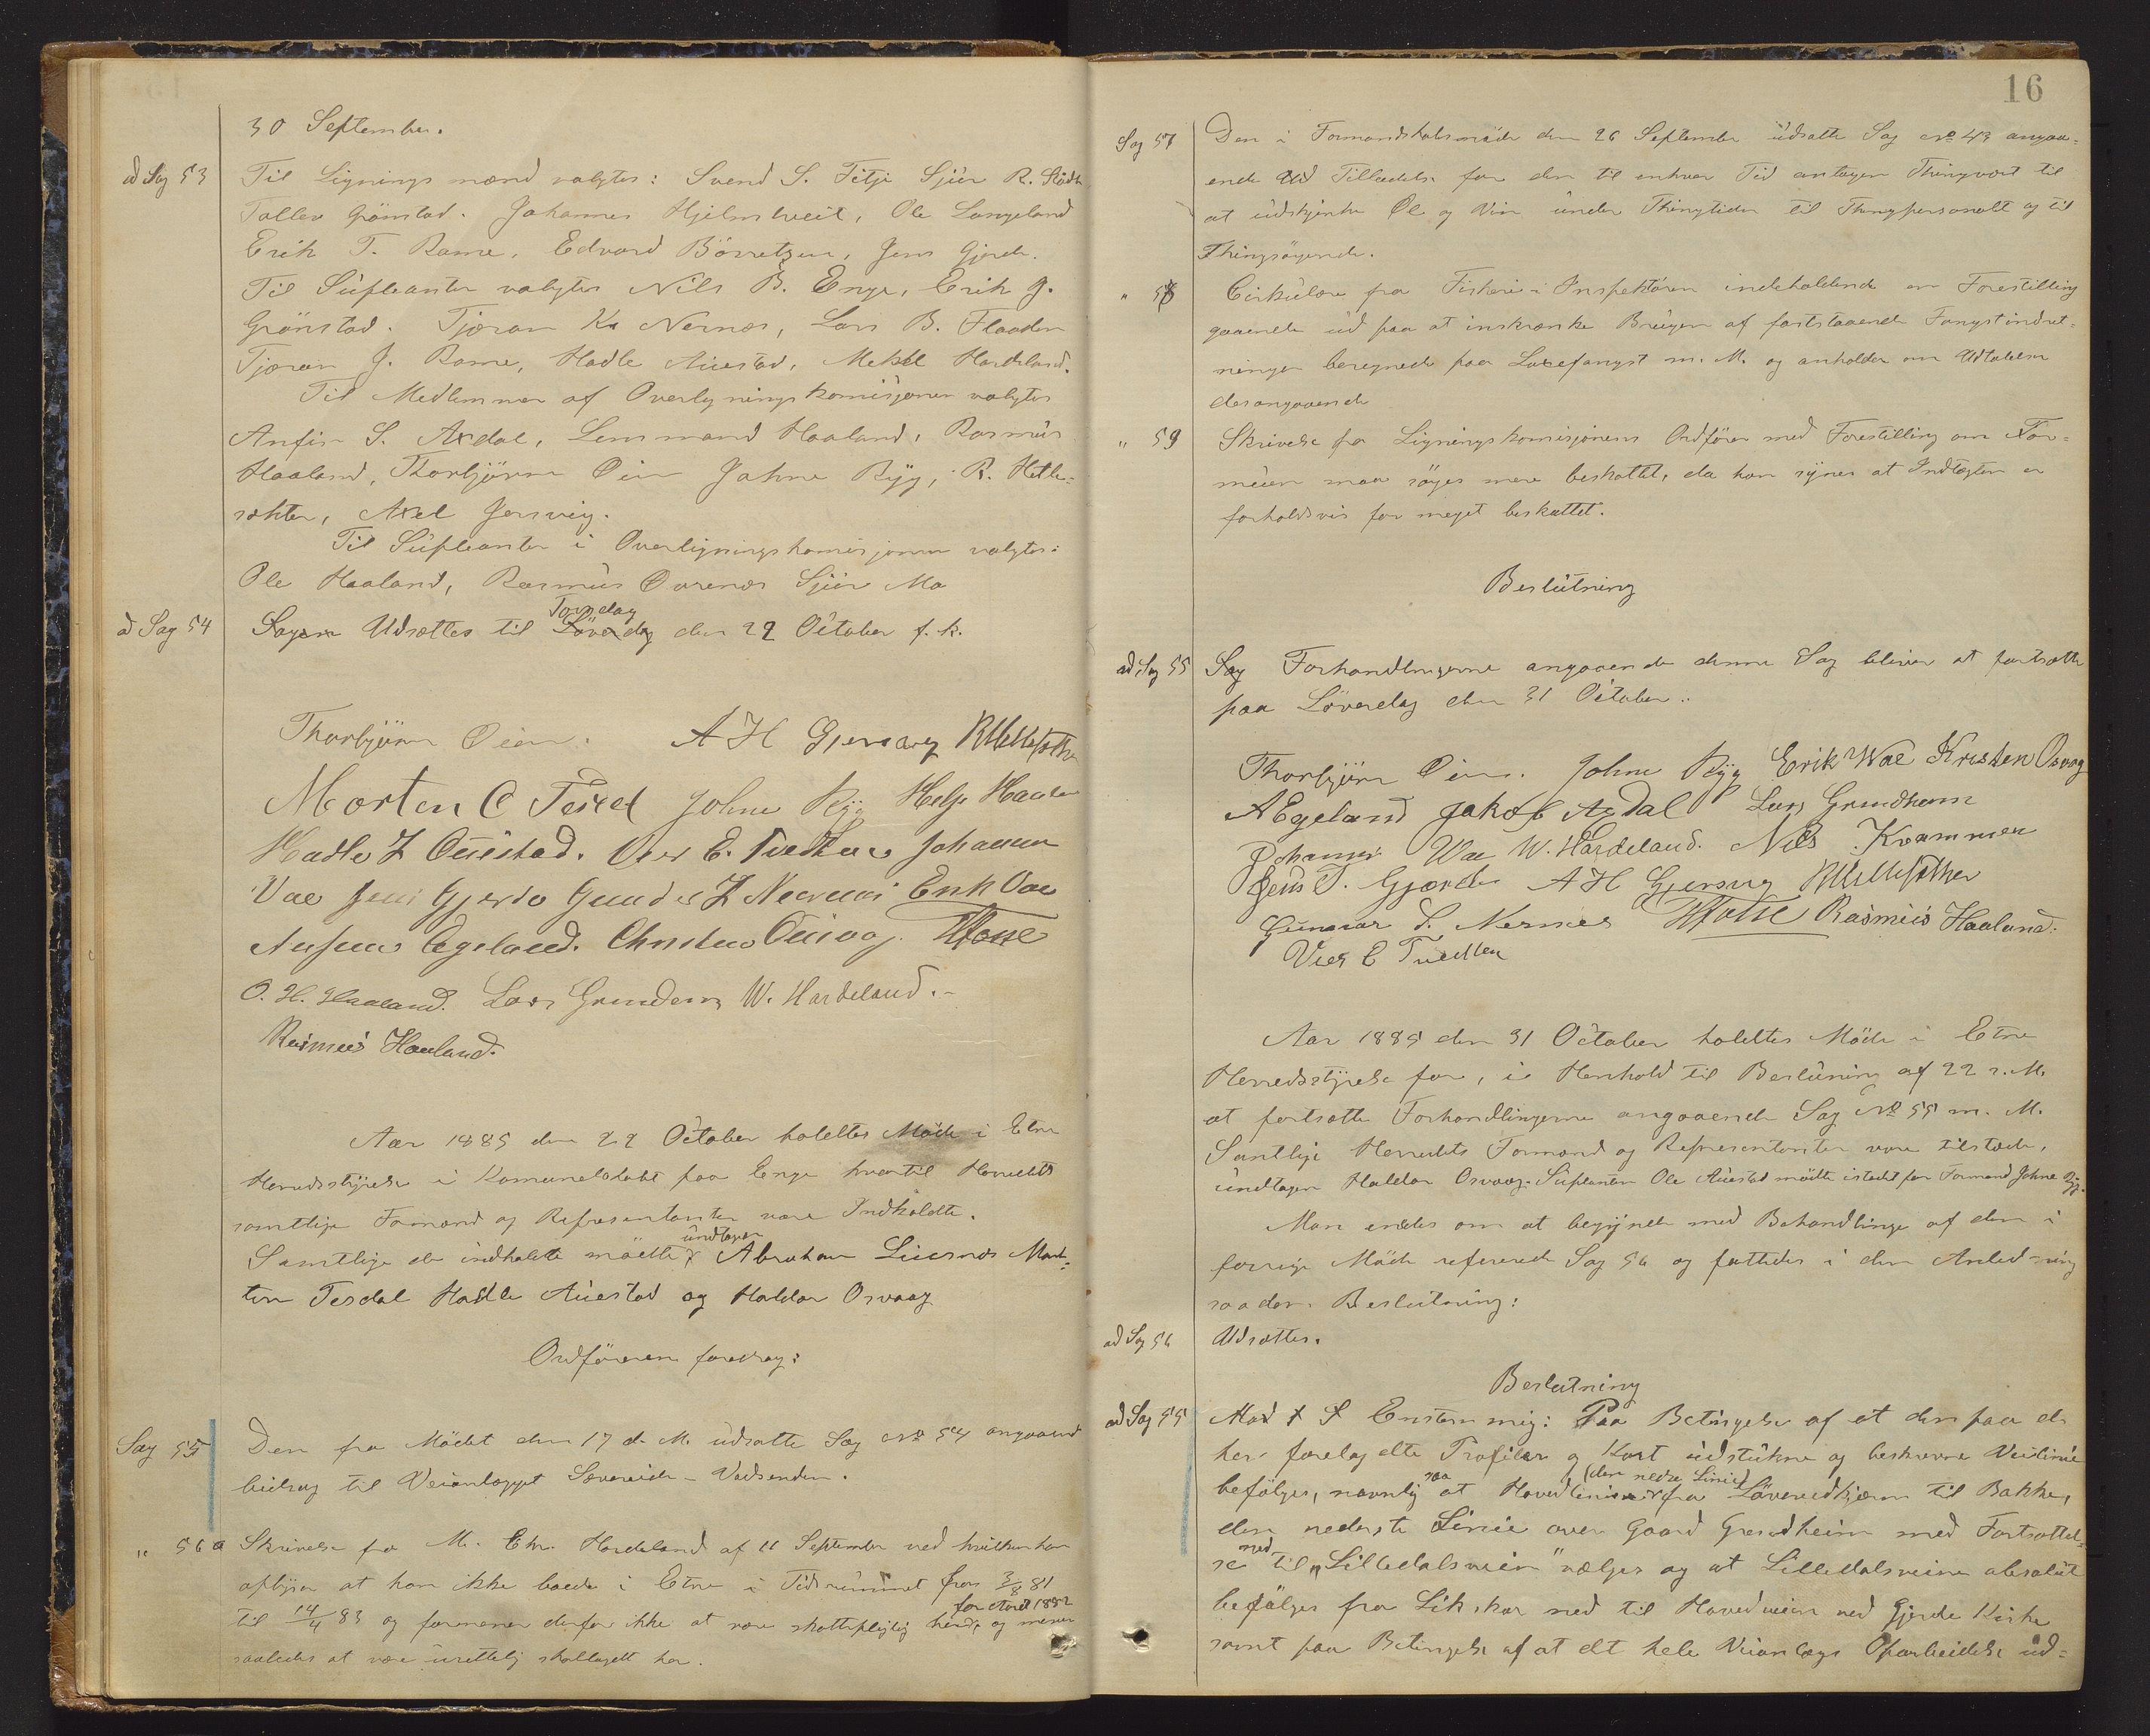 30 September.
ad Sag 53 Til Ligningsmænd valgtes: Svend S. Fitje Sjur R. Stödle
Tollev Grönstad. Johannes Hjelmtveit, Ole Langeland
Erik T. Rame, Edvard Börretzen, Jens Gjerde.
Til Supleanter valgtes Nils B. Enge, Erik J.
Grönstad. Tjæran K. Nernæs, Lars B. Flaaden
Tjæran J. Rame, Hadle Auestad, Mikkel Hardeland.
Til Medlemmer af Overlignings komisjonen valgtes
Anfin S. Axdal, Lensmand Haaland, Rasmus
Haaland, Thorbjörn Öien Johne Ryg, R. Hetle-
sæhter, Axel Jersvig.
Til Supleanter i Overligningskomisjonen valgtes:
Ole Haaland, Rasmus Övrenæs Sjur Mo
Torsdag
ad Sag 54 Sagen Udsættes til Löverdag den 22 October f. k.
Thorbjörn Öien. A H Gjersvig R Hettesæther
Morten C Tesdal Johne Ryg Helje Haaland
Hadle L Auestad. Vier E. Tvedten Johannes
Vae Jens Gjerde Gunder L Nernæs Erik Vae
Ansteen Egeland. Christen Ousvog. H Tose
O. H. Haaland. Lars Grindem W. Hardeland.
Rasmus Haaland.
Aar 1885 den 22 October holdtes Möde i Etne
Herredsstyrelse i Komunelokalet paa Enge hvortil Herredets
samtlige Formænd og Representanter vare Indkaldte.
undtagen
Samtlige de indkaldte mödte Abraham Liesnes Mor-
ten Tesdal Hadle Auestad og Haldor Osvaag
Ordföreren foredrag:
Sag 55 Den fra Mödet den 17 d. M. udsatte Sag No 54 angaaende
bidrag til Veianlægget Sævereide - Vadsenden.
" 56 a Skrivelse fra M. Chr. Hardeland af 11 September ved hvilken han
oplyser at han ikke boede i Etne i Tidsrummet fra 3/8 81
for Aaret 1882
til 14/4 83 og formener derfor ikke at være skattepligtig herid, og mener
saaledes at være urettelig skatlagdt her.
16
Sag 57 Den i Formandskabsmöde den 26 September udsatte Sag No 43 angaa-
ende Tilladelse for den til enhver Tid antagen Thingvært til
at udskjenke Öl og Vin under Thingtiden til Thingpersonalet og til
Thingsögende.
" 58 Cirkulære fra Fiskeri-Inspektören indeholdende en Forestilling
gaaende ud paa at inskrænke Brugen af faststaaende Fangstindret-
ninger beregnede paa Laxefangst m. M. og anholder om Udtalelse
desangaaende
" 59 Skrivelse fra Ligningskomisjonens Ordförer med Forestilling om For-
meuen maa söges mere beskattet, da han synes at Indtægten er
forholdsvis for meget beskattet.
Beslutning
ad Sag 55 Sag Forhandlingerne angaaende denne Sag bliver at fortsætte
paa Löverdag den 31 October..
Thorbjörn Öien. Johne Ryg Erik Wae Kristen Osvog
A Egeland Jakob Axdal Lars Grindheim
Johannes Wae W. Hardeland. Nils Kvammen
Jens T. Gjærde A H Gjersvig R Hettesæther
Gunnar S. Nernæs H Tosse Rasmus Haaland.
Vier E Tvedten
Aar 1885 den 31 October holdtes Möde i Etne
Herredsstyrelse for, i Henhold til Beslutning af 22 s. M.
at fortsætte Forhandlingerne angaaende Sag No 55 m. M.
Samtlige Herredets Formænd og Representanter vare tilstæde,
undtagen Haldor Osvaag. Supleanten Ole Auestad mödte istedet for Formand Johne Ryg.
Man enedes om at begynde med Behandlinge af den i
forrige Möde refererede Sag 56 og fattedes i den Anled-ning
saadan Beslutning:
ad Sag 56 Udsættes.
Beslutning
ad Sag 55 Enstemmig: Paa Betingelse af at den paa de
her forelagdte Profiler og Kort udstukne og beskrevne Veilinie
saa (den nedre Linie)
befölges, navnlig at Hovedlinien fra Lövereidkjærn til Bakke,
den nederste Linie over Gaard Grindheim med Fortsættel-
ned
se til "Litledalsveien" vælges og at Litledalsveien absolut
befölges fra Likskar ned til Hovedveien ved Gjerde Kirke
samt paa Betingelse af at det hele Veianlægs Oparbeidelse ud-